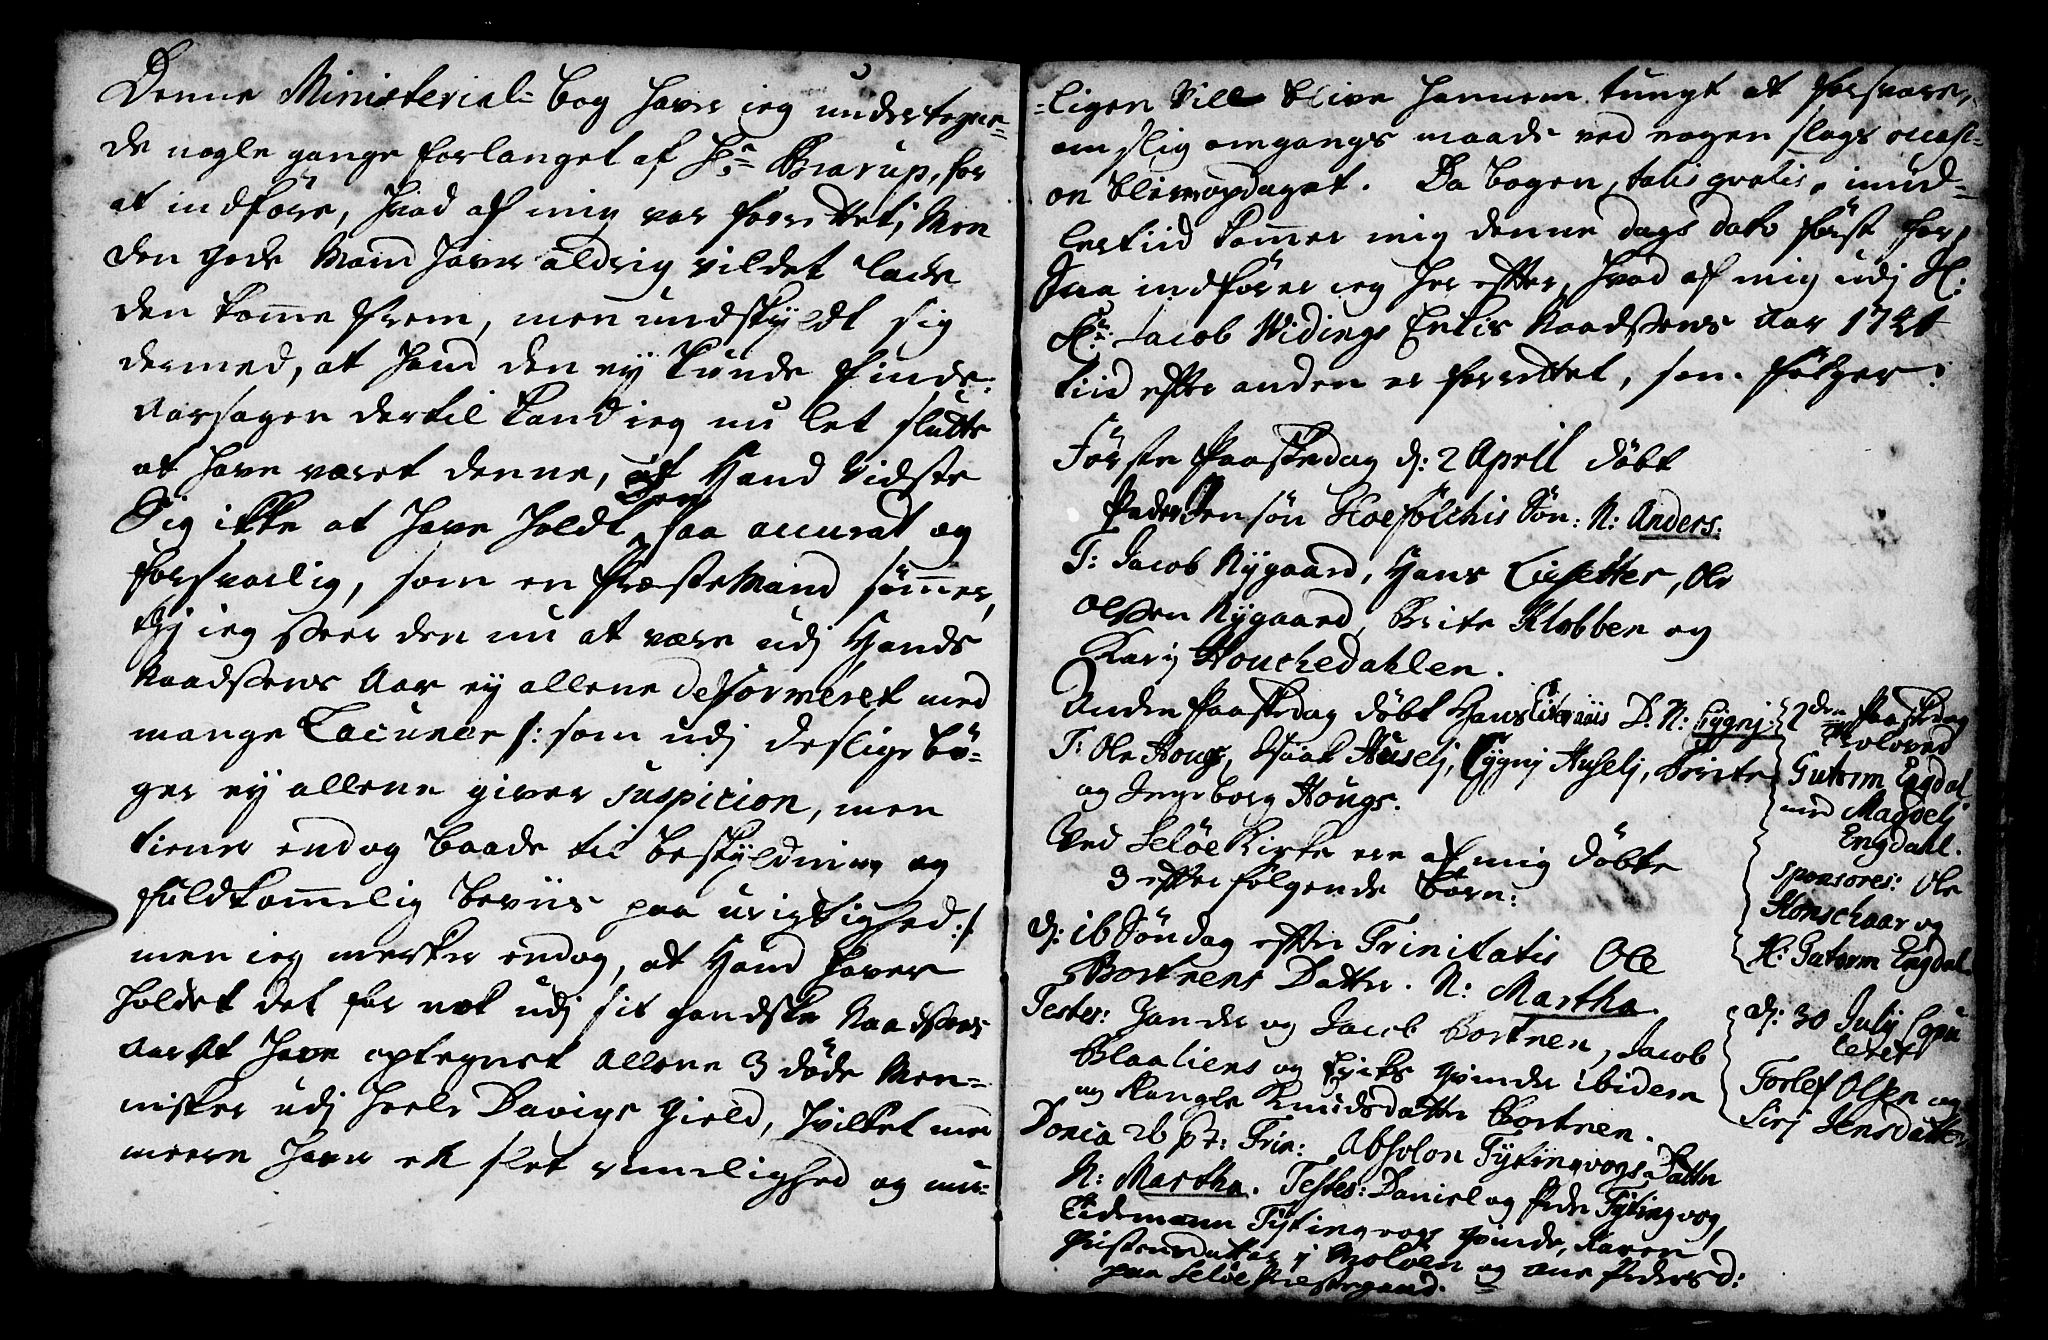 Denne Ministerial- bog haver ieg undertegne-
de nogle gange forlanget af Hr Brarup, for
at indföre, hvad af mig var forrettet; Men
den gode Mand haver aldrig vildet lade
den komme frem, men undskyldt sig
dermed, at hand den ey kunde finde:
Aarsagen dertil kand ieg nu let slutte
at have været denne, at Hand vidste
Sig ikke at have holdt den saa accurat og
forsvarlig, som en Præste Mand sömmer,
thj ieg seer den nu at være udj Hands
Naadsens Aar ey allene deformeret med
mange Lacuner /: som udj deslige bö-
ger ey allene giver suspicion, men
tiener endog baade til beskyldning og
fuldkommelig beviis paa urigtighed :/
men ieg merker endog, at Hand haver
holdet det for nok udj sit gandske Naadsens
Aar at have optegnet allene 3 döde Men-
nisker udj heele Davigs Gield, hvilket men
meere haver en slet rimelighed og
-ligen vill blive hannem tungt at forsvare,
om slig omgangs maade ved nogen slags occasi-
on bliver opdaget. Da bogen, talis qvalis, imid-
lertiid kommer mig denne dags dato först for,
Saa indförer ieg her efter, hvad af mig udj H:
Hr: Jacob Widings Enkis Naadsens Aar 1741
tiid efter anden er forrettet, som fölger:
Förste Paaskedag d: 2 Aprill döbt
Peder Jensön Sön: N: Anders:
T: Jacob Nygaard, Hans Ole
Olssen Nygaard, Brite Klobben og
Karj Houchedahlen.
Anden Paaskedag döbt Hans D. N: Sygnj:
T: Ole Hougs, Isaak Huselj, Sygnj Huselj, Berite
og Ingeborg Hougs.
Ved Selöe Kirke ere af mig döbte
3 efterfölgende börn:
d: 16 Söndag efter Trinitatis Ole
Bortnens Datter. N: Martha.
Testes: Zander og Jacob Bortnen, Jacob
Blaaliens og qvinder ibidem
og Rangle Knudsdatter Bortnen.
Domca 26 p: Trin: Absolon Tytingvogs Datter
N: Martha. Testes: Daniel og Peder Tytingvog,
Tidemann Tytingvogs qvinde, Karen
Christensdatter i Moldöen og Ane Pedersd:
paa Selöe Præstegaard.
2den Paaskedag
troloved
Gutorm Engdal
med Magdelj
Engdahl.
Sponsores: Ole
Hornschaar og
H: Gutorm Engdal
d: 30 July Copu
leret
Torlef Olsen og
Sirj Jensdatter